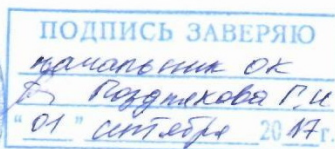 ПОДПИСЬ ЗАВЕРЯЮ
начальник ОК
Позднякова Г.И.
"01" сентября 2017 г.